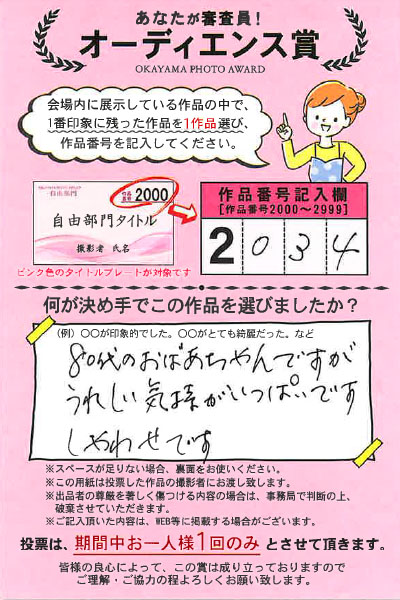 あなたが審査員!
オーディエンス賞
OKAYAMA PHOTO AWARD
会場内に展示している作品の中で、
1番印象に残った作品を1作品選び、
作品番号を記入してください。
自由部門
作品番号 2000
自由部門タイトル
撮影者 氏名
ピンク色のタイトルプレートが対象です
作品番号記入欄
[作品番号2000〜2999]
2 0 3 4
何が決め手でこの作品を選びましたか?
(例)〇〇が印象的でした。〇〇がとても綺麗だった。など
80代のおばあちゃんですが
うれしい気持がいっぱいです
しやわせです
※スペースが足りない場合、裏面をお使いください。
※この用紙は投票した作品の撮影者にお渡し致します。
※出品者の尊厳を著しく傷つける内容の場合は、事務局で判断の上、
破棄させていただきます。
※ご記入頂いた内容は、WEB等に掲載する場合がございます。
投票は、期間中お一人様1回のみ とさせて頂きます。
皆様の良心によって、この賞は成り立っておりますので
ご理解・ご協力の程よろしくお願い致します。